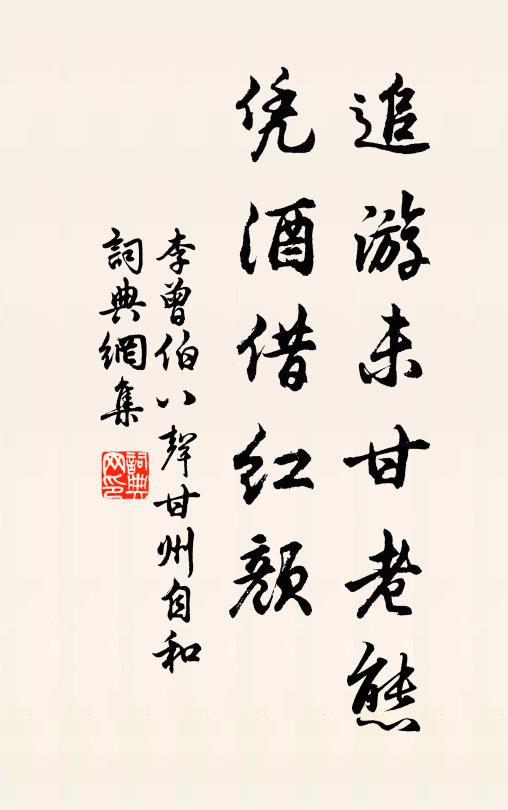 追游未甘老態
凭酒借红顏
李曾伯八聲甘州自和
詞典網集
詞典網印